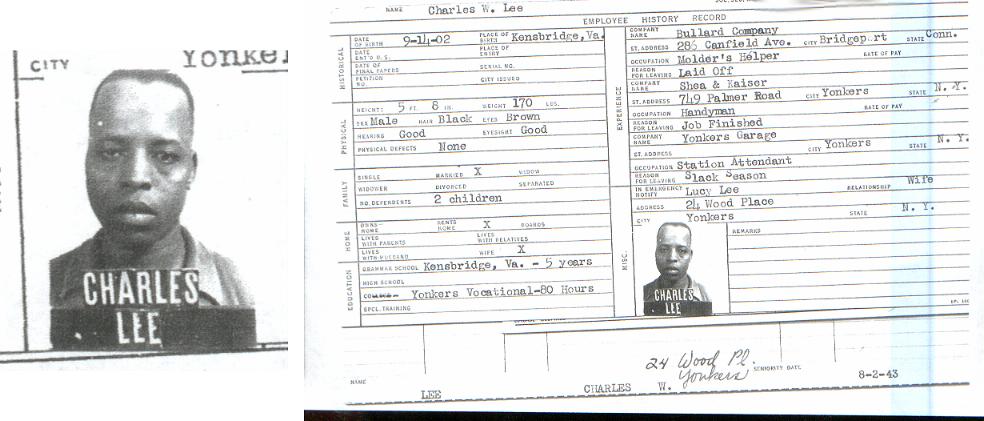 CITY Yonkers
CHARLES
LEE
NAME Charles W. Lee
EMPLOYEE HISTORY RECORD
HISTORICAL
DATE OF BIRTH 9-14-02 PLACE OF BIRTH Kensbridge, Va.
DATE ENT'D U.S. PLACE OF ENTRY
DATE OF FINAL PAPERS SERIAL NO.
PETITION NO. CITY ISSUED
PHYSICAL
HEIGHT: 5 FT. 8 IN. WEIGHT 170 LBS.
SEX Male HAIR Black EYES Brown
HEARING Good EYESIGHT Good
PHYSICAL DEFECTS None
FAMILY
SINGLE MARRIED X WIDOW
WIDOWER DIVORCED SEPARATED
NO. DEPENDENTS 2 children
HOME
OWNS HOME RENTS HOME X BOARDS
LIVES WITH PARENTS LIVES WITH RELATIVES
LIVES WITH HUSBAND WIFE X
EDUCATION
GRAMMAR SCHOOL Kensbridge, Va. - 5 years
HIGH SCHOOL
Yonkers Vocational-80 Hours
SPCL. TRAINING
EXPERIENCE
COMPANY NAME Bullard Company
ST. ADDRESS 286 Canfield Ave. CITY Bridgeport STATE Conn.
OCCUPATION Molder's Helper RATE OF PAY
REASON FOR LEAVING Laid Off
COMPANY NAME Shea & Kaiser
ST. ADDRESS 749 Palmer Road CITY Yonkers STATE N. Y.
OCCUPATION Handyman RATE OF PAY
REASON FOR LEAVING Job Finished
COMPANY NAME Yonkers Garage
ST. ADDRESS CITY Yonkers STATE N. Y.
OCCUPATION Station Attendant
REASON FOR LEAVING Slack Season
MISC.
IN EMERGENCY NOTIFY Lucy Lee RELATIONSHIP Wife
ADDRESS 24 Wood Place
CITY Yonkers STATE N. Y.
REMARKS
CHARLES
LEE
24 Wood Pl.
Yonkers
SENIORITY DATE 8-2-43
NAME LEE CHARLES W.